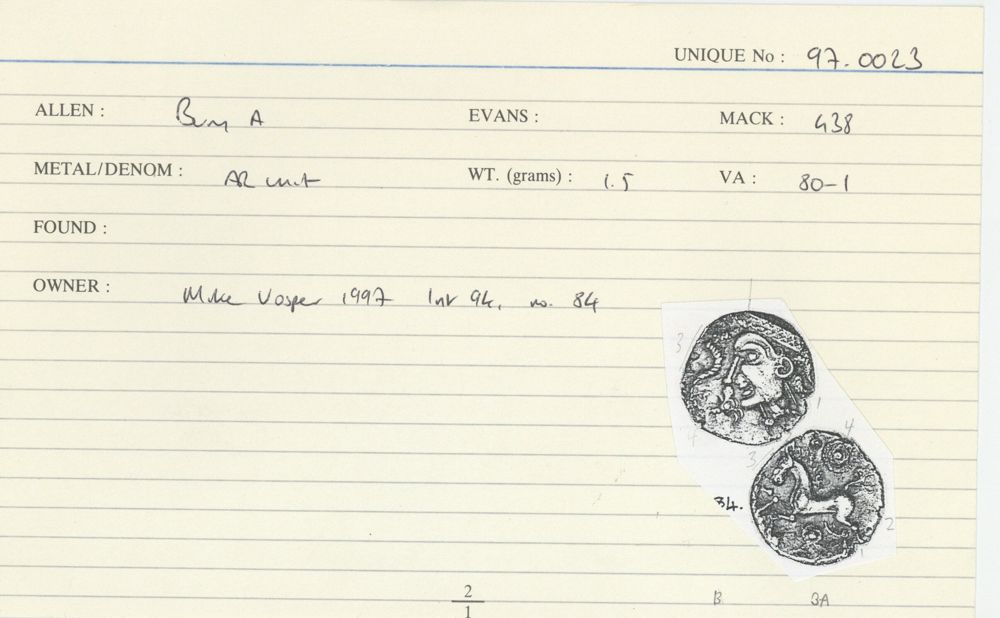 UNIQUE No : 97.0023
ALLEN : Bury A EVANS : MACK : 438
METAL/DENOM : AR unit WT. (grams) : 1.5 VA : 80-1
FOUND :
OWNER : Mike Vosper 1997 List 94, no. 84
3
1
4
3
4
34.
2
1
2
1
B 3A